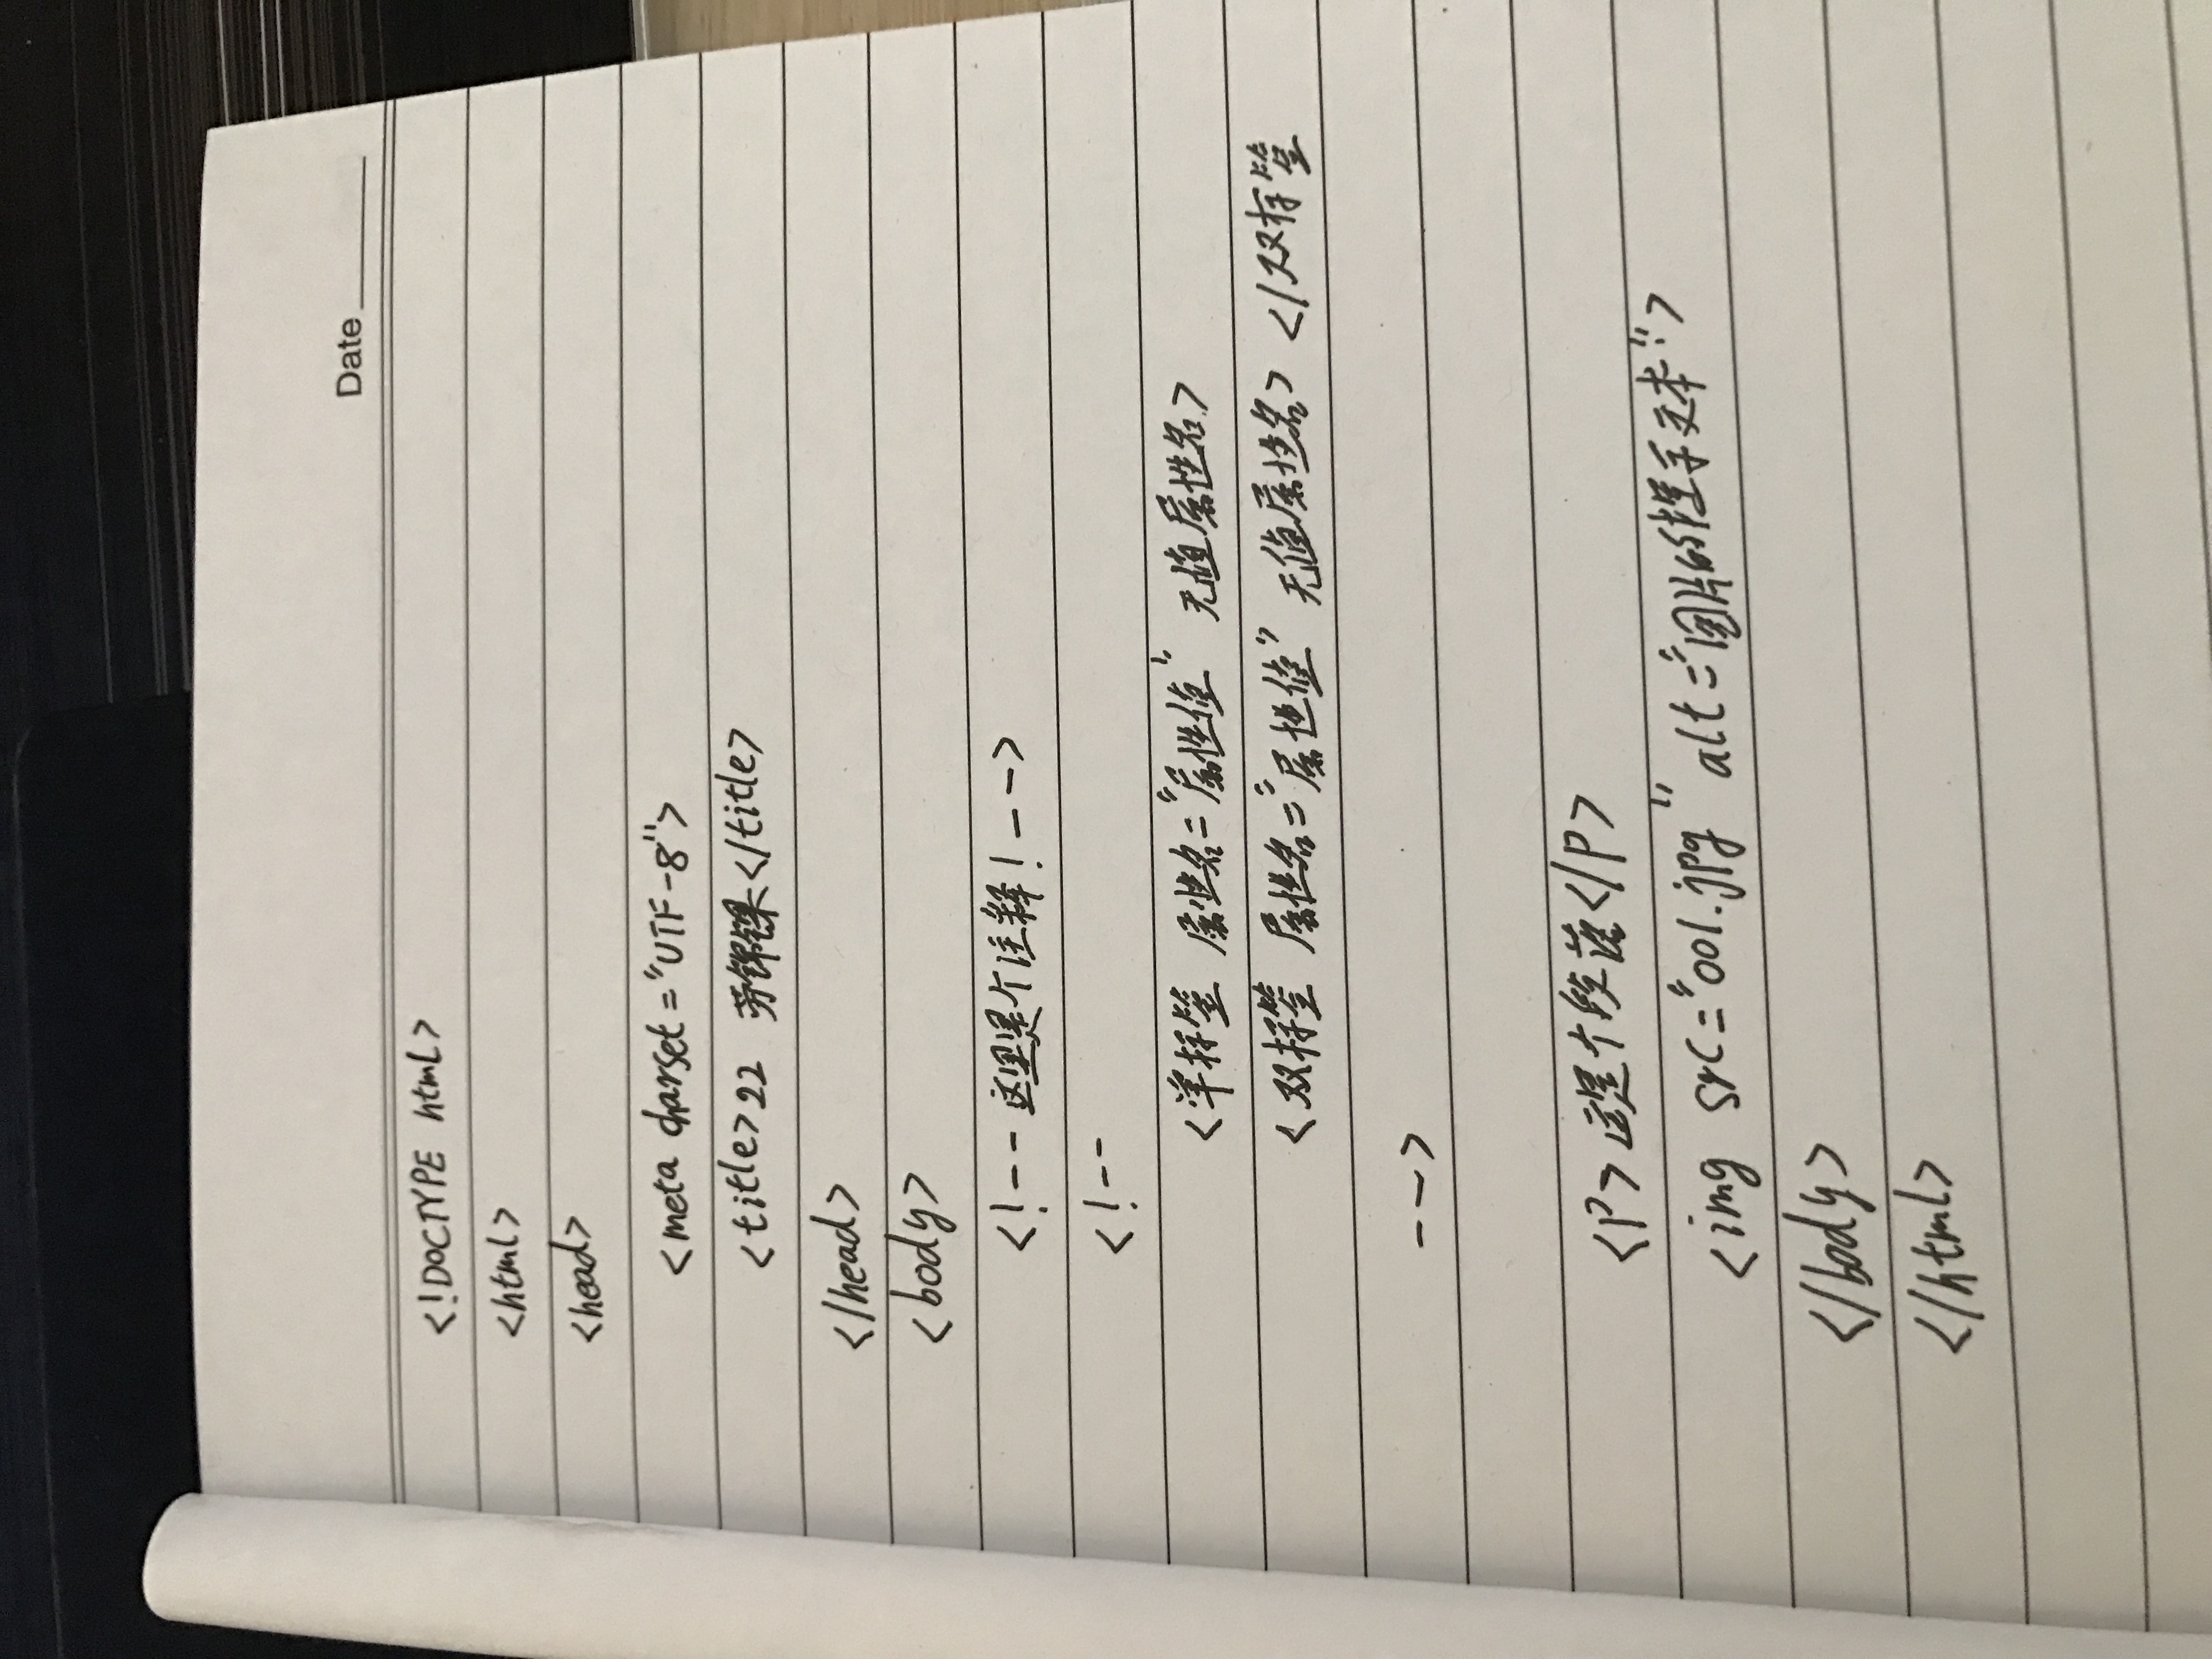 Date
<!DOCTYPE html>
<html>
<head>
<meta charset="UTF-8">
<title>22 劳锦锞</title>
</head>
<body>
<!--这里是个注释!-->
<!--
<单标签 属性名="属性值" 无值属性名>
<双标签 属性名="属性值" 无值属性名> </双标签
-->
<P>这是个段落</P>
<img src="001.jpg" alt="图片的提示文本">
</body>
</html>